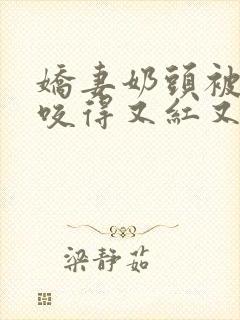 嬌妻奶頭被
咬得又紅又
梁靜茹